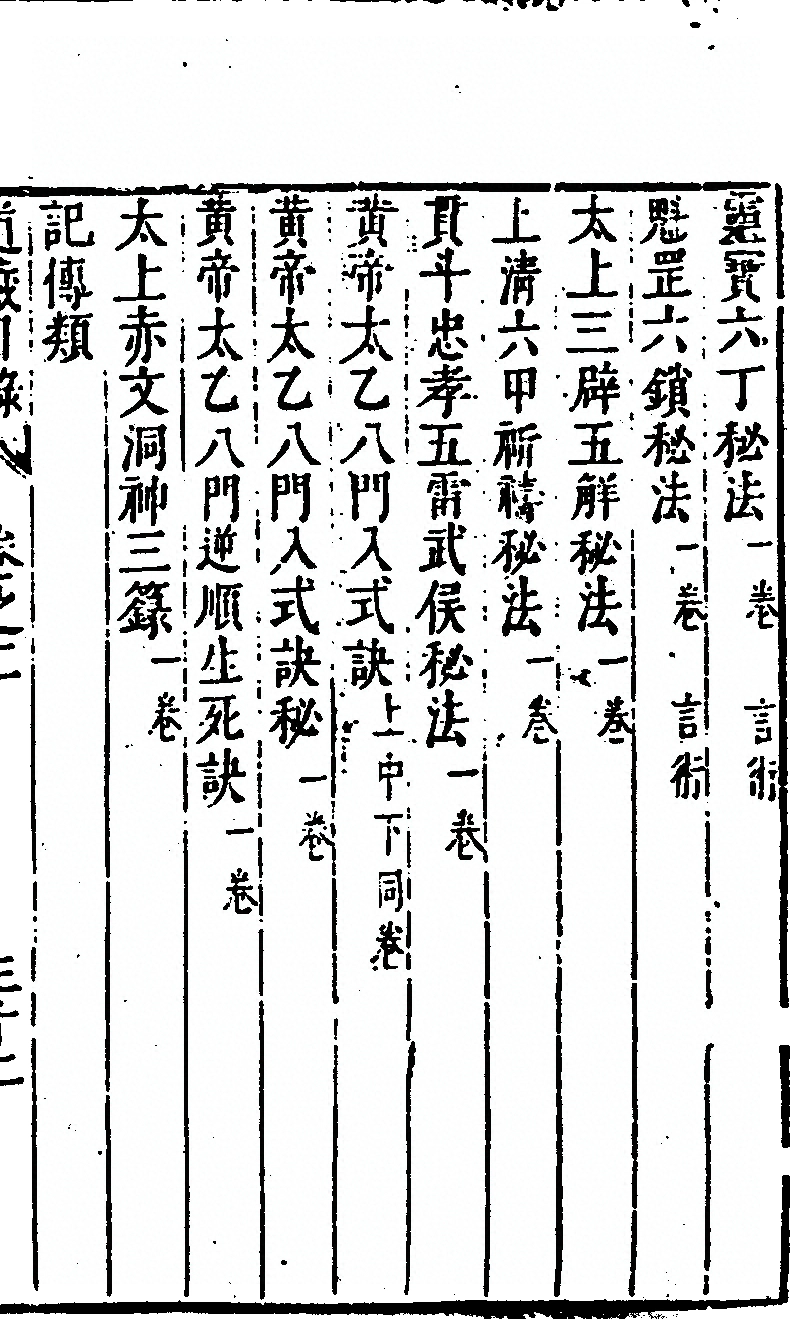 靈寳六丁秘法一卷 言術
魁罡六鎖秘法一卷 言術
太上三辟五解秘法一卷
上清六甲祈禱秘法一卷
貫斗忠孝五雷武侯秘法一卷
黄帝太乙八門入式訣上中下同卷
黄帝太乙八門入式訣秘一卷
黄帝太乙八門逆順生死訣一卷
太上赤文洞神三籙一卷
記傳類